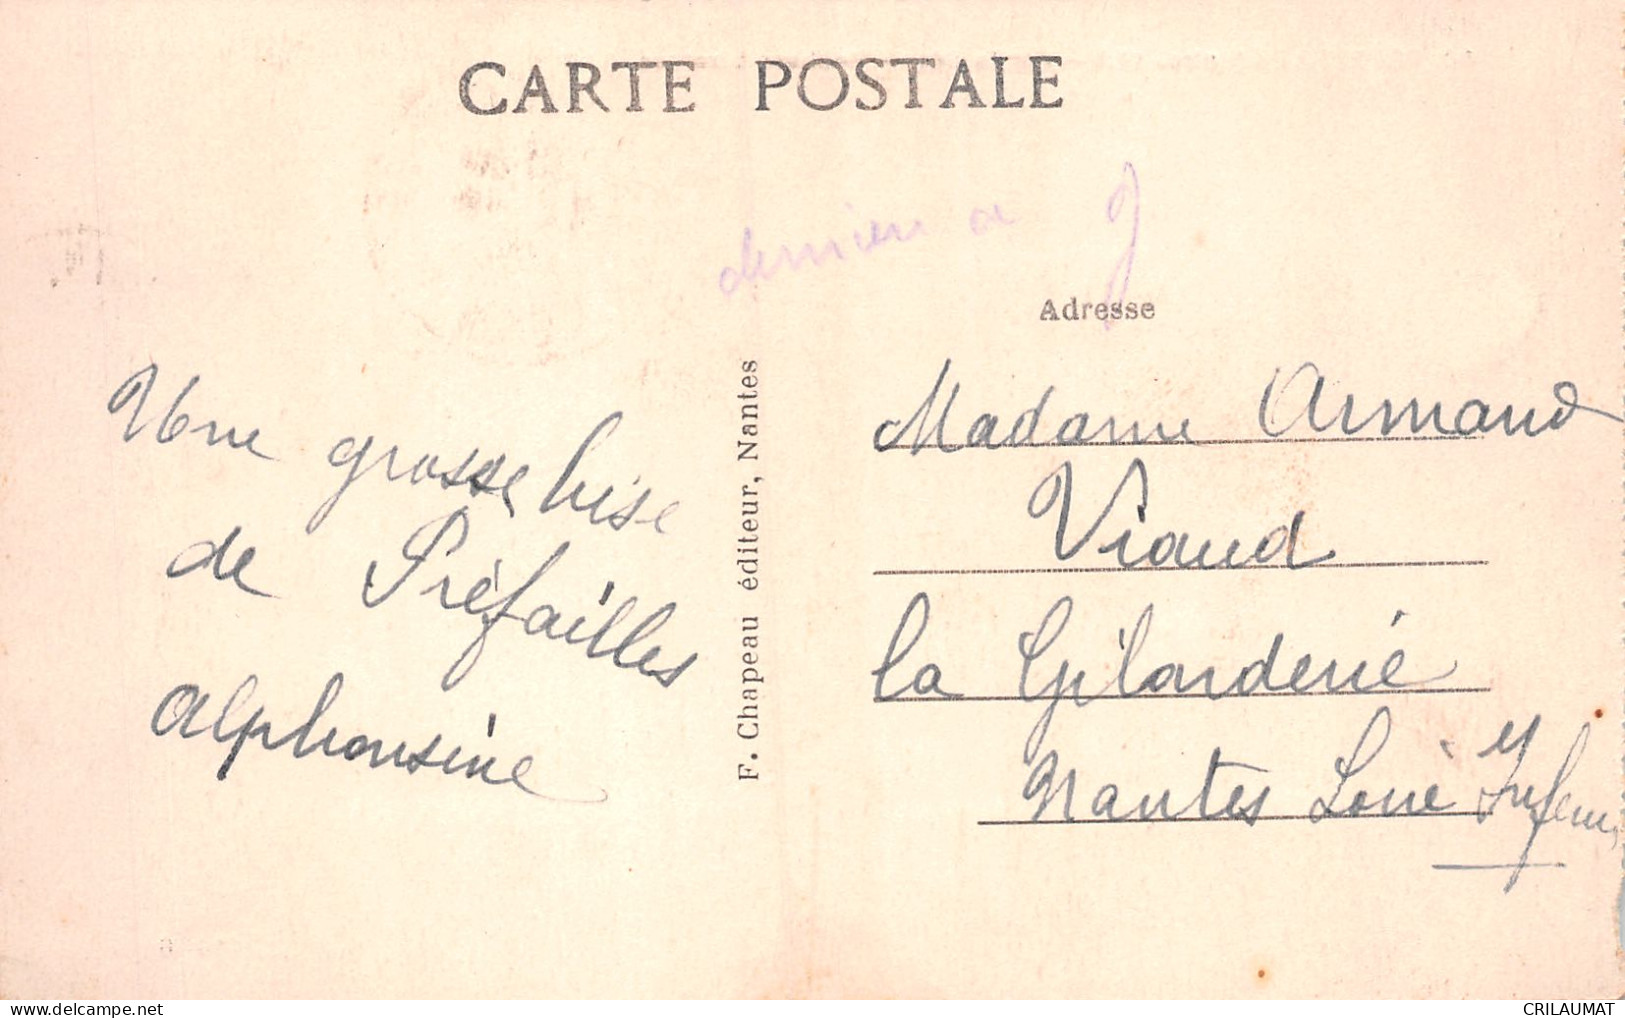 CARTE POSTALE
dernier a
Adresse
Une grosse bise
de Préfailles
Alphonsine
F. Chapeau éditeur, Nantes
Madame Armand
Viaud
la Gilarderie
Nantes Loire Infeur
CRILAUMAT